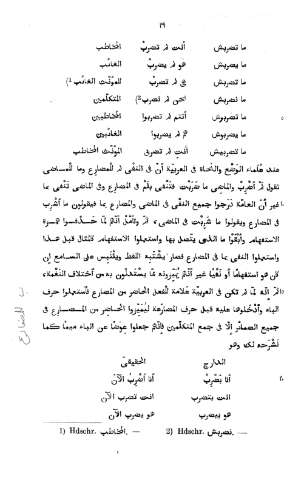 ٢٩
ما تضربش انت لم تضرب المخاطب
ما يضربش هو لم يضرب الغائب
ما تضربش هى لم تضرب للمؤنث الغائب (2
ما نضربش نحن لم نضرب (2 المتكلمين
ما تضربوش أنتم لم تضربوا المخاطبين
ما يضربوش هم لم يضربوا الغائبين
ما تضربيش أنت لم تضربى المؤنث المخاطب
عند علماء الوضع والنحاة فى العربية أن النفى للمضارع بلم وما للماضى
تقول لم أضرب والماضى ما ضربت فالمضارع تنفى بلم فى المضارع وفى الماضى تنفى بما
غير أن العامة درجوا جميع النفى فى الماضى والمضارع بما يقولون ما أضرب
فى مضارع ويقولوا ما ضربت فى الماضى
الاستفهام وأبقوا ما الذى يتصل بها واستعملوا الاستفهام كمثال قبل هذا
واستعملوا النفى بما فى المضارع فصار يشتبه اللفظ ويلتبس على السامع إن
كان هو استفهاما أو نفيا غير أنهم يميزونه بما يستدلون به من أختلاف النغمات
ثم إنه لما لم تكن فى العربية علامة للفعل الحاضر من المضارع فاستعملوا حرف
الباء وأدخلوها عليه قبل حرف المضارعة ليميزوا الحاضر من المستقبل فى
جميع الضمائر إلا فى جمع المتكلمين فانهم جعلوا عوضا عن الباء ميما كما
نشرحه لك وهو
الدارج الحقيقى
أنا بضرب أنا أضرب الآن
انت بتضرب انت تضرب الآن
هو بيضرب هو يضرب الآن
1) Hdschr. المخاطب. — 2) Hdschr. نضربش. —
ب للمضارع